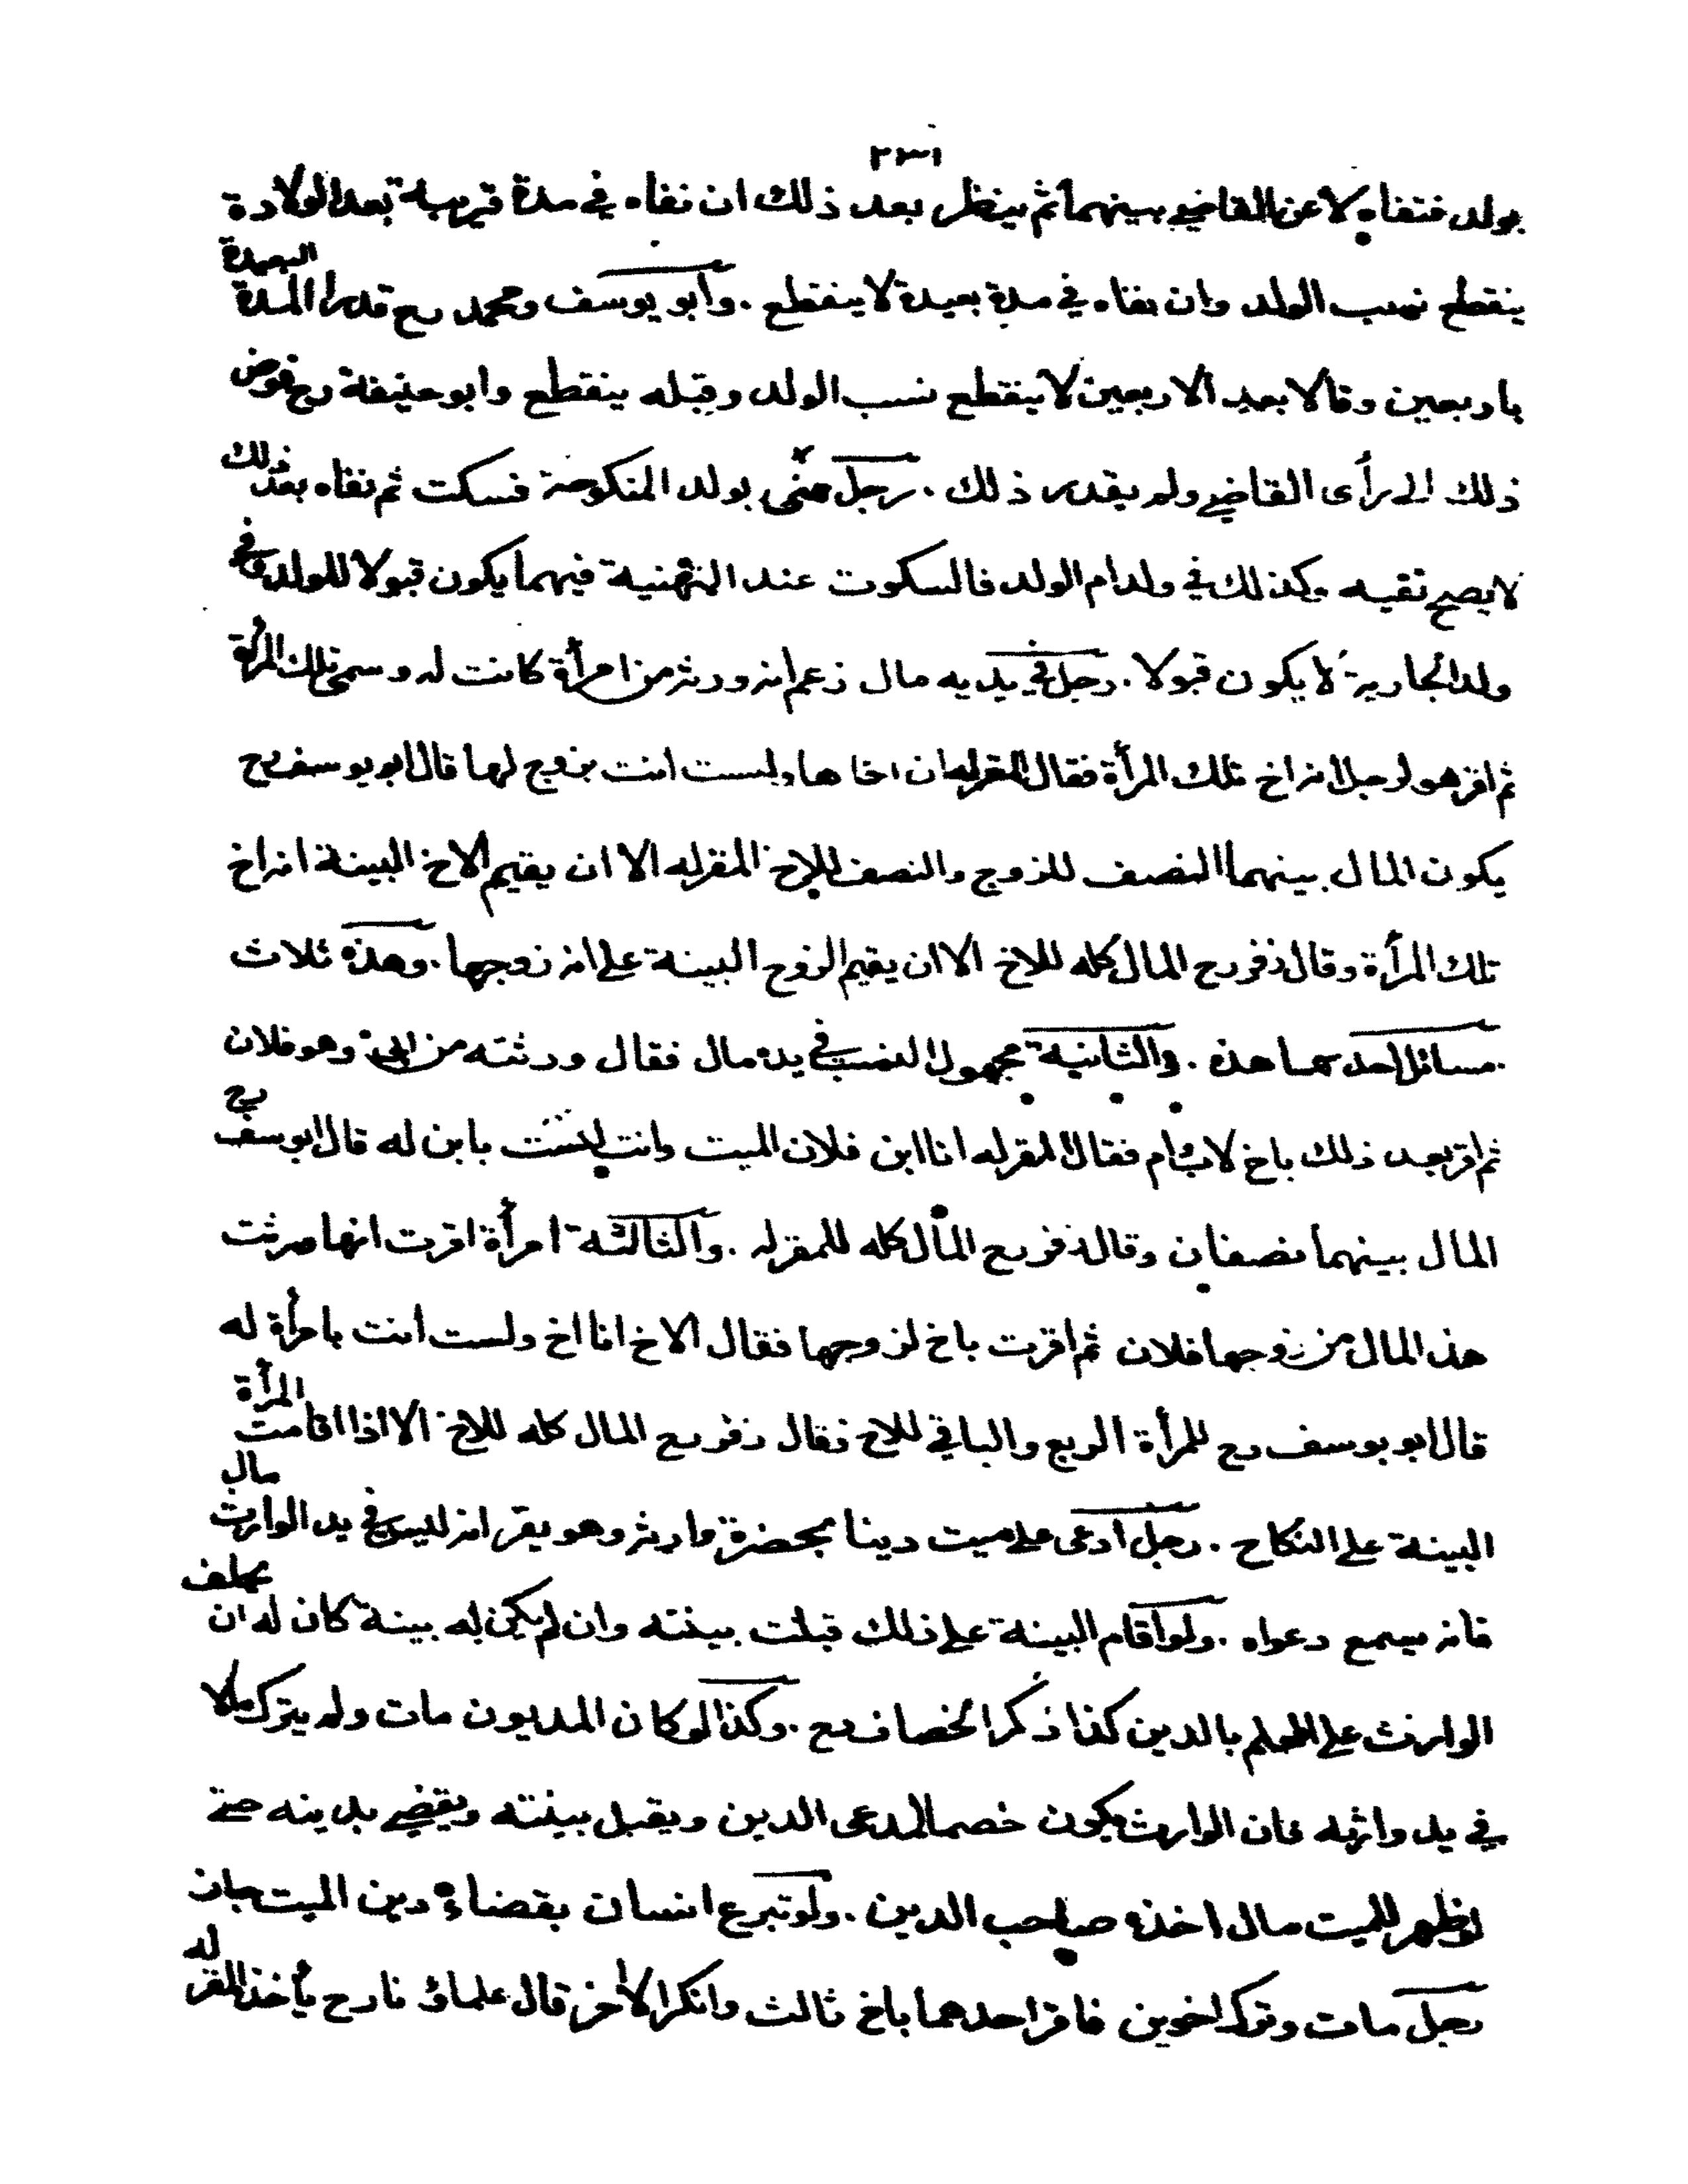 ٢٣١
بولد فنفاه لاعن القاضي بينهما ثم ينظر بعد ذلك ان نفاه في مدة قريبة بعد الولادة
ينقطع نسب الولد وان نفاه في مدة بعيدة لا ينقطع . وابو يوسف ومحمد رح قدرا المدة البعيدة
باربعين وقالا بعد الاربعين لا ينقطع نسب الولد وقبله ينقطع وابو حنيفة رح فوض
ذلك الى رأى القاضي ولم يقدر ذلك . رجل هنى بولد المنكوحة فسكت ثم نفاه بعد ذلك
لا يصح نفيه وكذلك في ولد ام الولد فالسكوت عند التهنية فيهما يكون قبولا للولد وفي
ولد الجارية لا يكون قبولا . رجل في يديه مال زعم انه ورثه من امرأة كانت له وسمى تلك المرأة
ثم اقر هو لرجل انه اخ تلك المرأة فقال المقر له ان اخاها وليست انت بزوج لها قال ابو يوسف رح
يكون المال بينهما النصف للزوج والنصف للاخ المقر له الا ان يقيم الاخ البينة انه اخ
تلك المرأة وقال زفر رح المال كله للاخ الا ان يقيم الزوج البينة على انه زوجها . وهذه ثلاث
مسائل احدىهما هذه . والثانية مجهول النسب في يده مال فقال ورثته من ابي وهو فلان
ثم اقر بعد ذلك باخ لاب وام فقال المقر له انا ابن فلان الميت وانت لست بابن له قال ابو يوسف رح
المال بينهما نصفان وقال زفر رح المال كله للمقر له . والثالثة امرأة اقرت انها ورثت
هذ المال من زوجها فلان ثم اقرت باخ لزوجها فقال الاخ انا اخ ولست انت بامرأة له
قال ابو يوسف رح للمرأة الربع والباقي للاخ وقال زفر رح المال كله للاخ الا اذا اقامت المرأة
البينة على النكاح . رجل ادعى على ميت دينا بحضرة وارثه وهو يقر انه ليس في يد الوارث مال
فانه يسمع دعواه . ولو اقام البينة على ذلك قبلت بينته وان لم يكن له بينة كان له ان يحلف
الوارث على العلم بالدين كذا ذكر الخصاف رح . وكذا لو كان المديون مات ولم يترك مالا
في يد وارثه فان الوارث يكون خصما لمدعى الدين ويقبل بينته ويقضي بدينه حتى
لو ظهر للميت مال اخذه صاحب الدين . ولو تبرع انسان بقضاء دين الميت جاز
رجل مات وترك اخوين فاقر احدهما باخ ثالث وانكر الاخر قال علماؤنا رح يأخذ المقر له